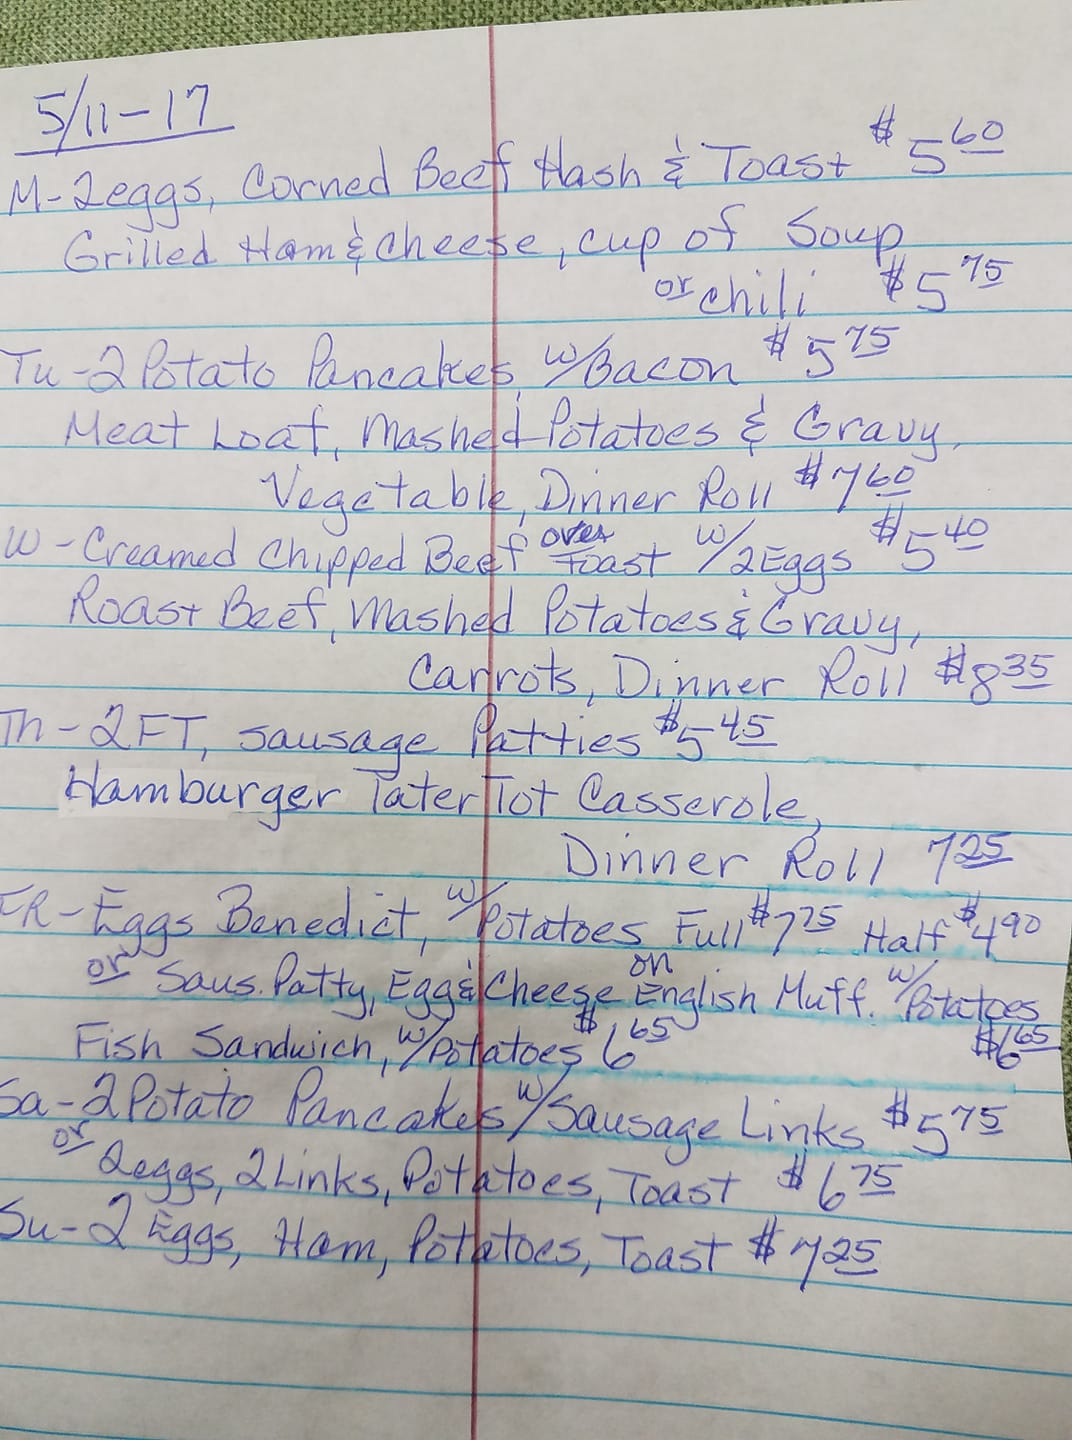 5/11-17
M-2eggs, Corned Beef Hash & Toast $5 60
Grilled Ham & Cheese, cup of Soup
or chili $5 75
Tu-2 Potato Pancakes w/Bacon $5 75
Meat Loaf, Mashed Potatoes & Gravy,
Vegetable, Dinner Roll $7 60
W-Creamed Chipped Beef over Toast w/2Eggs $5 40
Roast Beef, Mashed Potatoes & Gravy,
Carrots, Dinner Roll $8 35
Th-2FT, Sausage Patties $5 45
Hamburger Tater Tot Casserole,
Dinner Roll 7 25
FR-Eggs Benedict, w/Potatoes Full $7 75 Half $4 90
or Saus. Patty, Egg & Cheese on English Muff. w/Potatoes
$6 65
Fish Sandwich, w/Potatoes $6 65
Sa-2 Potato Pancakes w/Sausage Links $5 75
or 2eggs, 2Links, Potatoes, Toast $6 75
Su-2 Eggs, Ham, Potatoes, Toast $7 25